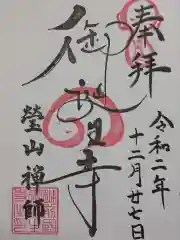 奉拝
令和二年
十二月廿七日
御誕生寺
瑩山禅師